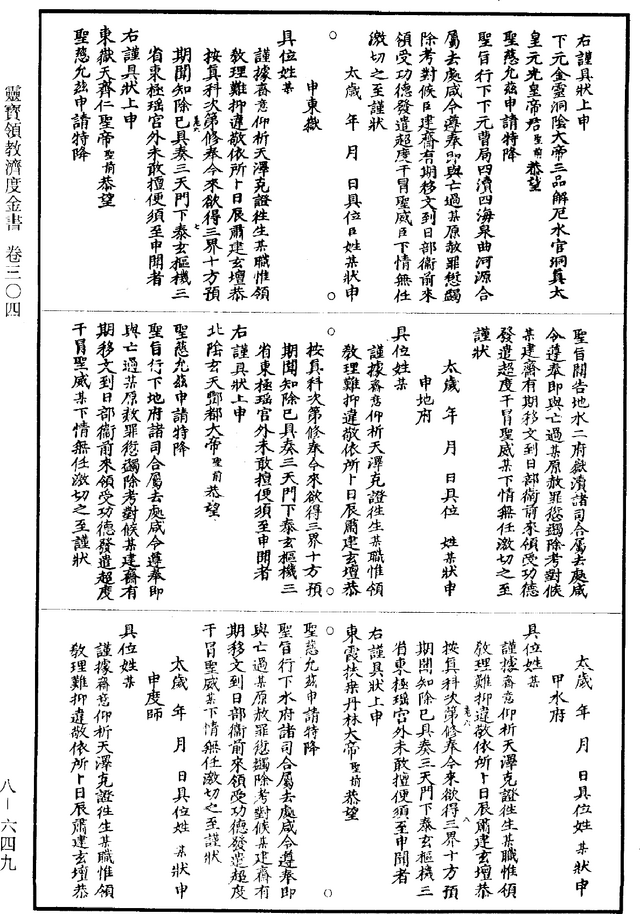 靈寶領教濟度金書 卷三〇四
右謹具狀上申
下元金靈洞陰大帝三品解厄水官洞真太
皇元光皇帝君聖前恭望
聖慈允兹申請特降
聖旨行下下元曹局四瀆四海泉曲河源合
屬去處咸令遵奉即與亡過某原赦罪愆蠲
除考對候臣建齋有期移文到日部衛前來
領受功德發遣超度干冒聖威臣下情無任
激切之至謹狀
太歲 年 月 日具位臣姓某狀申
申東嶽
具位姓某
謹據齋意仰祈天澤克證徃生某職惟領
敎理難抑違敬依所卜日辰肅建玄壇恭
按真科次第修奉今來欲得三界十方預
期聞知除已具奏三天門下泰玄樞機三
省東極瑶官外未敢擅便須至申聞者
右謹具狀上申
東嶽天齊仁聖帝聖前恭望
聖慈允兹申請特降
聖旨關告地水二府嶽瀆諸司合屬去處咸
令遵奉即與亡過某原赦罪愆蠲除考對候
某建齋有期移文到日部衛前來領受功德
發遣超度干冒聖威某下情無任激切之至
謹狀
太歲 年 月 日具位 姓某狀申
申地府
具位姓某
謹據齋意仰祈天澤克證徃生某職惟領
敎理難抑違敬依所卜日辰肅建玄壇恭
按真科次第修奉今來欲得三界十方預
期聞知除已具奏三天門下泰玄樞機三
省東極瑶官外未敢擅便須至申聞者
右謹具狀上申
北陰玄天酆都大帝聖前恭望
聖慈允兹申請特降
聖旨行下地府諸司合屬去處咸令遵奉即
與亡過某原赦罪愆蠲除考對候某建齋有
期移文到日部衛前來領受功德發遣超度
干冒聖威某下情無任激切之至謹狀
太歲 年 月 日具位姓 某狀申
申水府
具位姓某
謹據齋意仰祈天澤克證徃生某職惟領
敎理難抑違敬依所卜日辰肅建玄壇恭
按真科次第修奉今來欲得三界十方預
期聞知除已具奏三天門下泰玄樞機三
省東極瑶宫外未敢擅便須至申聞者
右謹具狀上申
東霞扶桒丹林大帝聖前恭望
聖慈允兹申請特降
聖旨行下水府諸司合屬去處咸令遵奉即
與亡過某原赦罪愆蠲除考對候某建齋有
期移文到日部衛前來領受功德發遣超度
干冒聖威某下情無任激切之至謹狀
太歲 年 月 日具位姓 某狀申
申度師
具位姓某
謹據齋意仰祈天澤克證徃生某職惟領
敎理難抑違敬依所卜日辰肅建玄壇恭
八－六四九